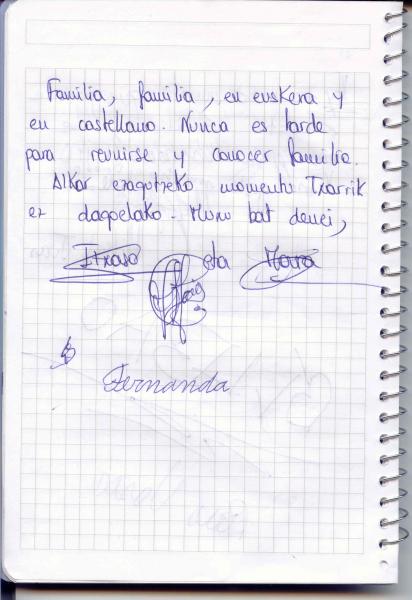 Familia, familia, en euskera y
en castellano. Nunca es tarde
para reunirse y conocer familia.
Alkar ezagutzeko momentu txarrik
ez dagoelako. Muxu bat denei,
Itxaso eta Maria
Fernanda